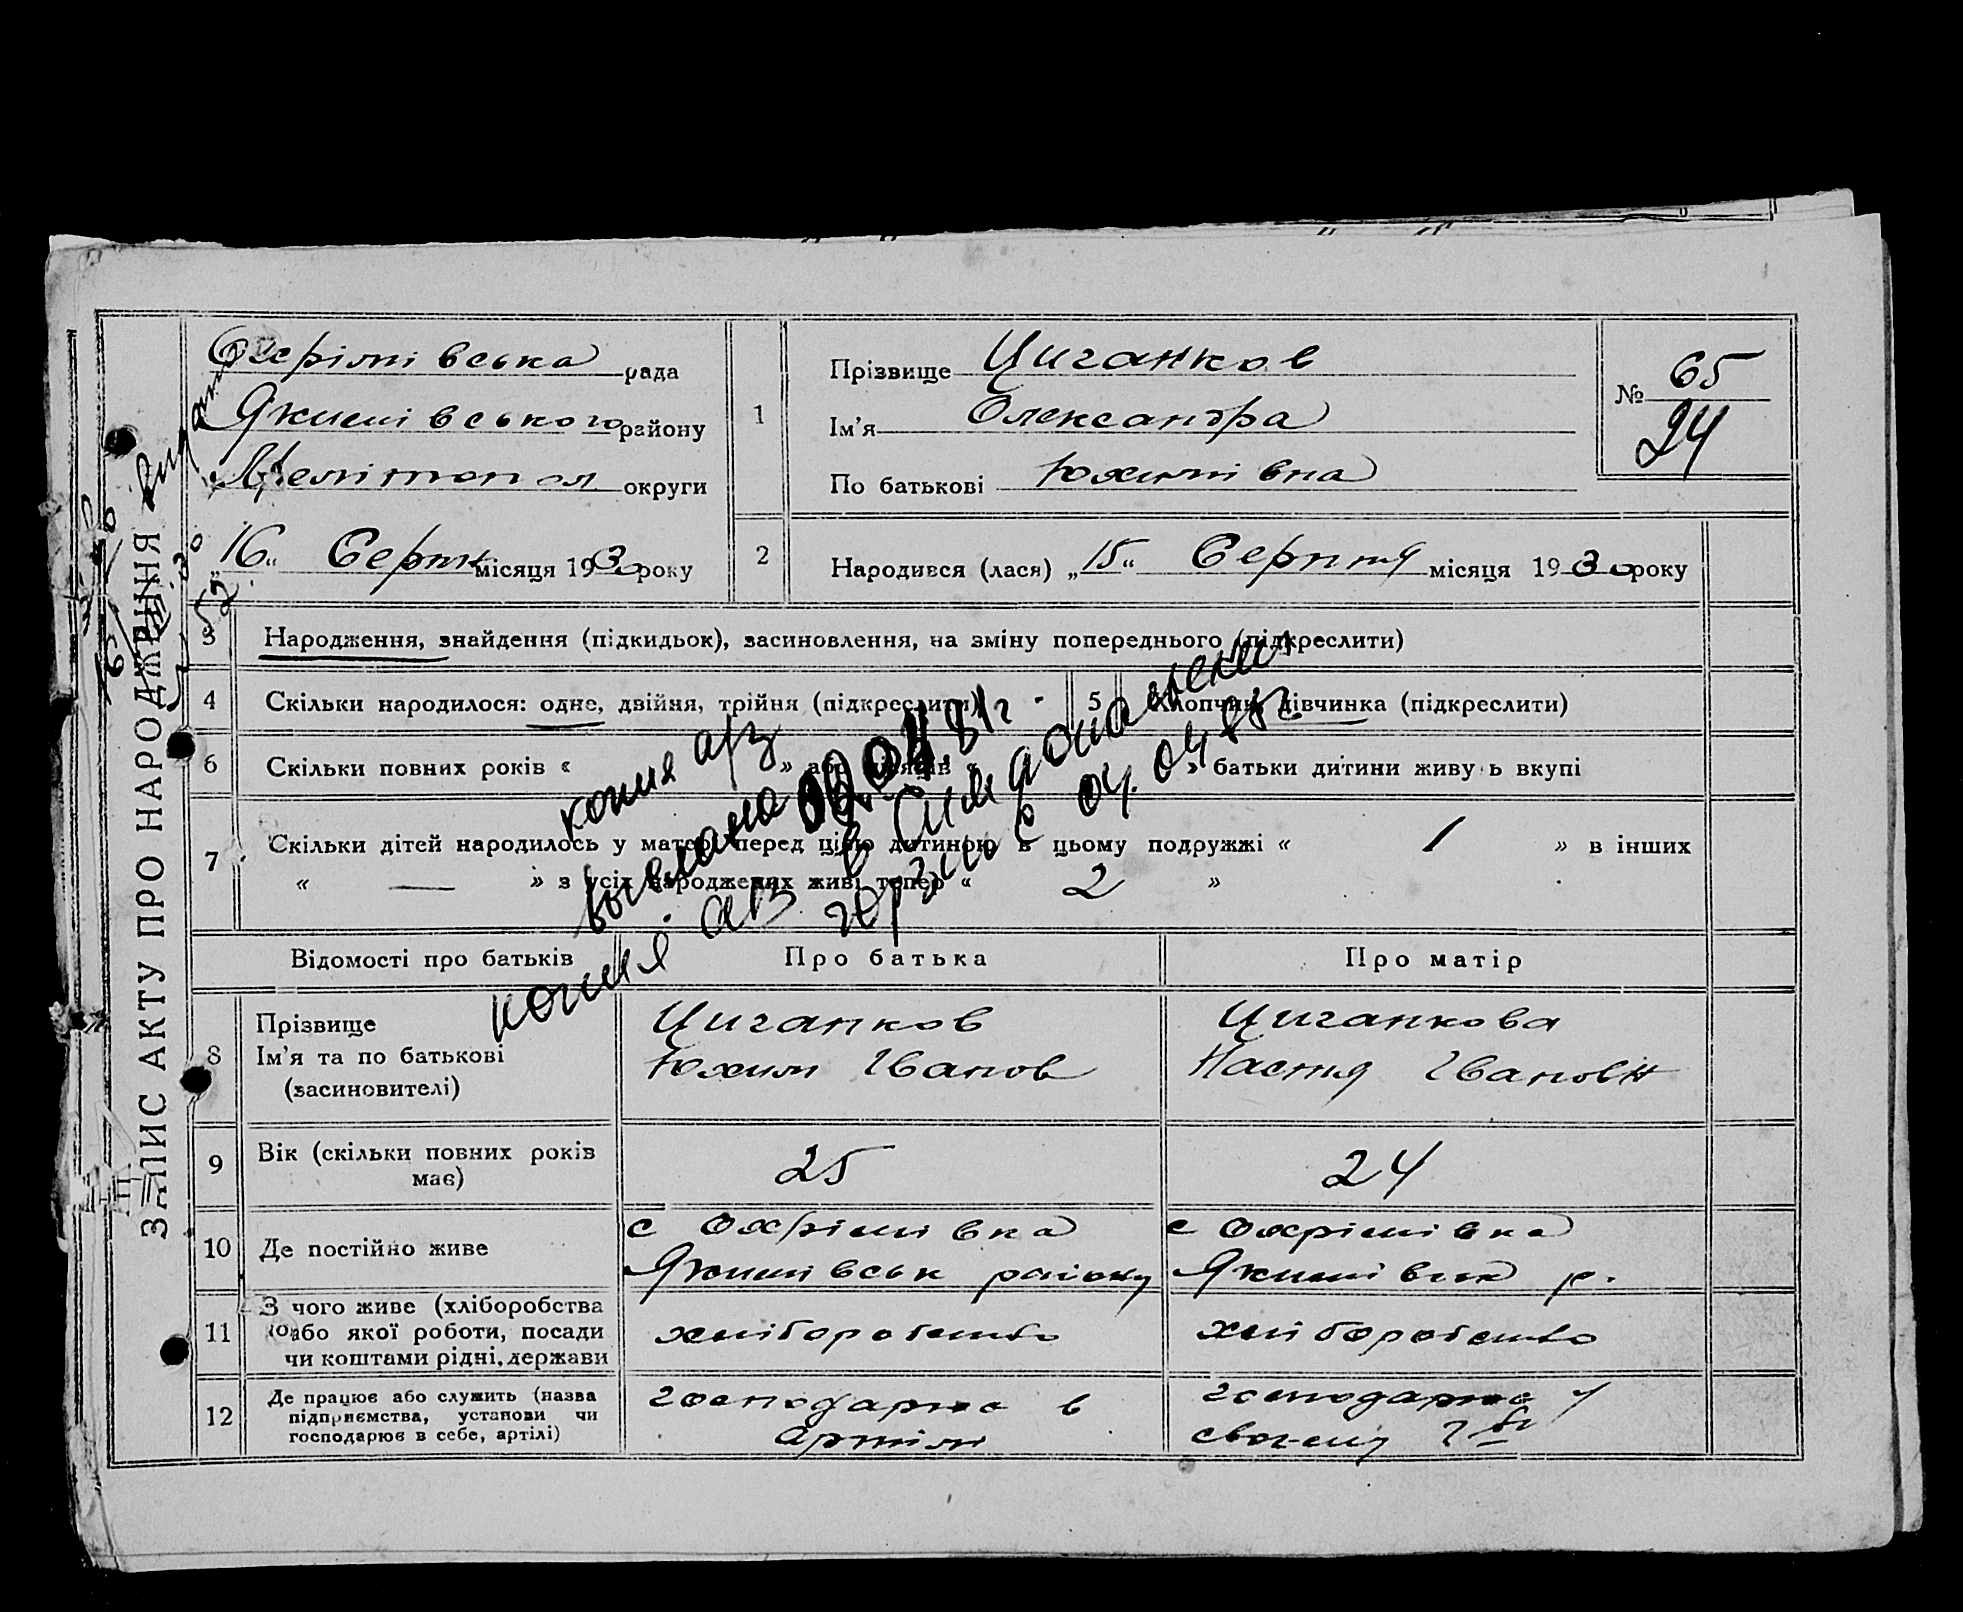 Охрімівська рада
Якимівського району
Мелітопол округи
„16“ Серпн місяця 1930 року
1
Прізвище Циганков
Ім'я Олександра
По батькові Юхимівна
№ 65
24
2
Народився (лася) „15“ Серпня місяця 1930 року
ЗАПИС АКТУ ПРО НАРОДЖЕННЯ
3 Народження, знайдення (підкидьок), засиновлення, на зміну попереднього (підкреслити)
4 Скільки народилося: одне, двійня, трійня (підкреслити) 5 Хлопчик, дівчинка (підкреслити)
6 Скільки повних років « » або місяців « » батьки дитини живуть вкупі
7 Скільки дітей народилось у матері перед цією дитиною в цьому подружжі « 1 » в інших
« — » з усіх народжених живі тепер « 2 »
копия а/з
выслана 04.81г.
копия аз в
04.04.
Відомості про батьків Про батька Про матір
8 Прізвище
Ім'я та по батькові
(засиновителі)
Циганков
Юхим Іванов
Циганкова
Настя Івановн
9 Вік (скільки повних років
має)
25
24
10 Де постійно живе
с Охрімівка
Якимівськ району
с Охрімівка
Якимівськ р.
11 З чого живе (хліборобства
або якої роботи, посади
чи коштами рідні, держави
хліборобство
хліборобство
12 Де працює або служить (назва
підприємства, установи чи
господарює в себе, артілі)
господарює в
артілі
господарює у
своєму